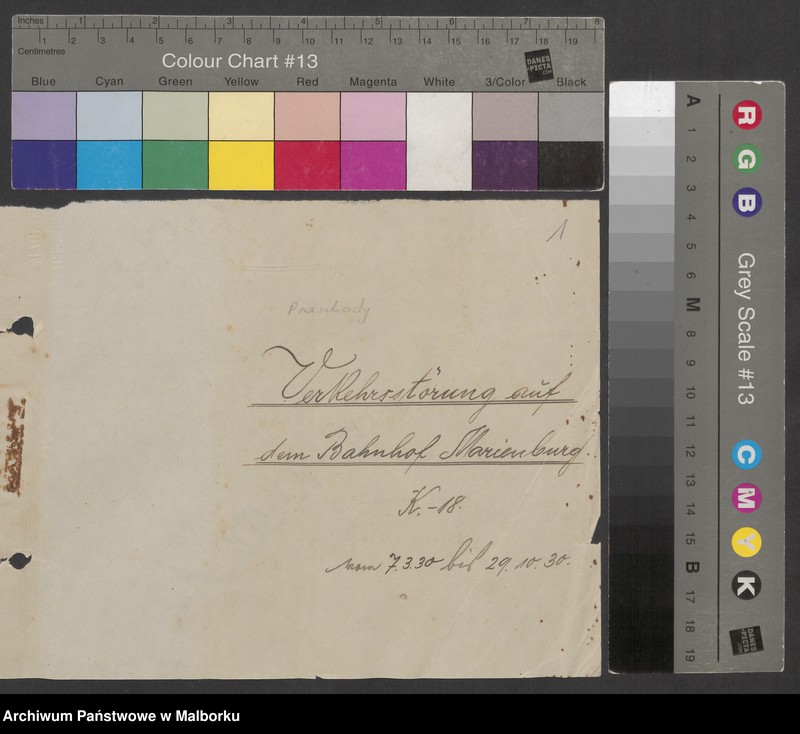 Inches 1 2 3 4 5 6 7 8
1 2 3 4 5 6 7 8 9 10 11 12 13 14 15 16 17 18 19
Centimetres
Colour Chart #13
DANES
-PICTA
.COM
Blue Cyan Green Yellow Red Magenta White 3/Color Black
A 1 2 3 4 5 6 M 8 9 10 11 12 13 14 15 B 17 18 19
R G B
Grey Scale #13
C M Y K
DANES
-PICTA
.COM
1
Verkehrsstörung auf
dem Bahnhof Marienburg.
K.-18.
vom 7.3.30 bis 29.10.30.
Archiwum Państwowe w Malborku